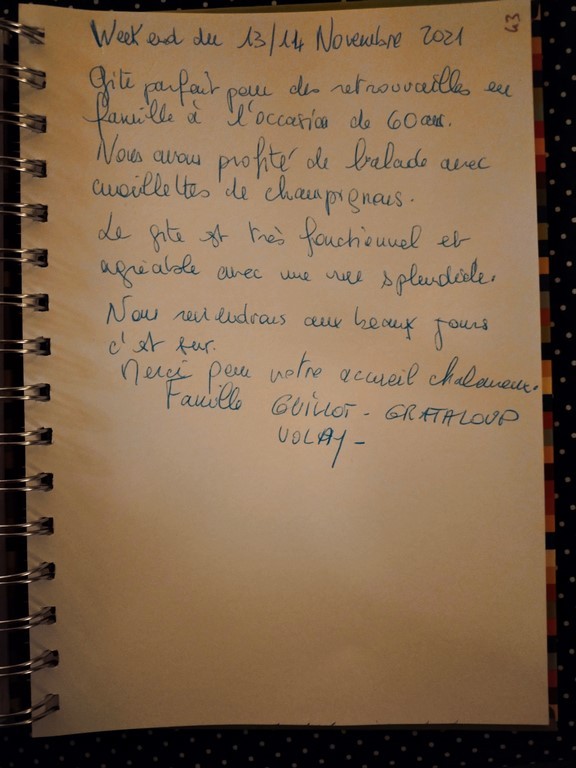 43
Week end du 13/14 Novembre 2021
Gite parfait pour des retrouvailles en
famille à l'occasion de 60 ans.
Nous avons profité de balade avec
cueillettes de champignons.
Le gite est très fonctionnel et
agréable avec une vue splendide.
Nous reviendrons aux beaux jours
c'est sur.
Merci pour votre accueil chaleureux.
Famille GUILLOT - GRATALOUP
VOLAY -